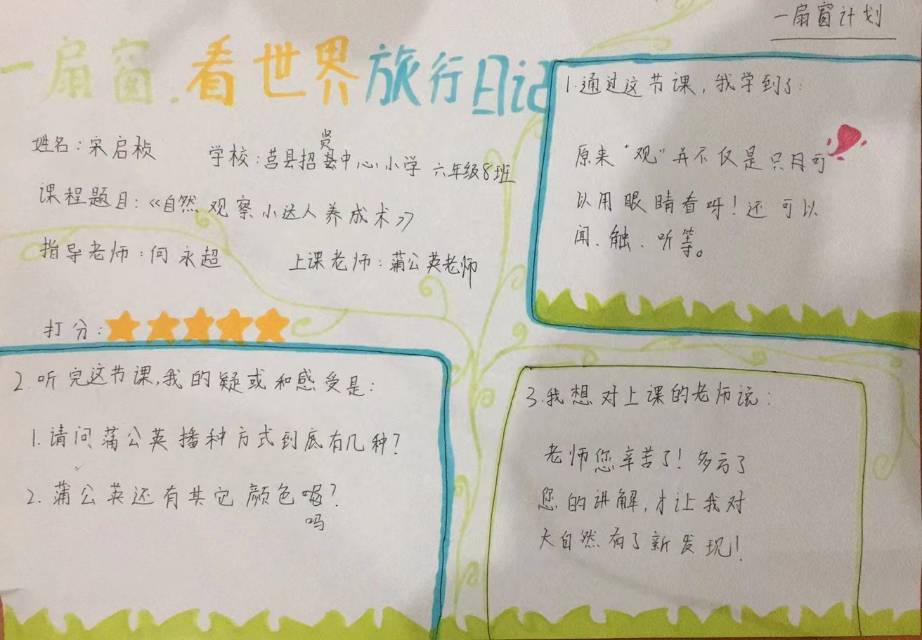 一扇窗计划
一扇窗.看世界旅行日记
姓名:宋启桢 学校:莒县招贤中心小学 六年级8班
课程题目:《自然观察小达人养成术》
指导老师:何永超 上课老师:蒲公英老师
打分:
1.通过这节课,我学到了:
原来“观”并不仅是只月可
以用眼睛看呀!还可以
闻、触、听等。
2.听完这节课,我的疑或和感受是:
1.请问蒲公英播种方式到底有几种?
2.蒲公英还有其它颜色吗?
3.我想对上课的老师说:
老师您辛苦了!多亏了
您的讲解,才让我对
大自然有了新发现!